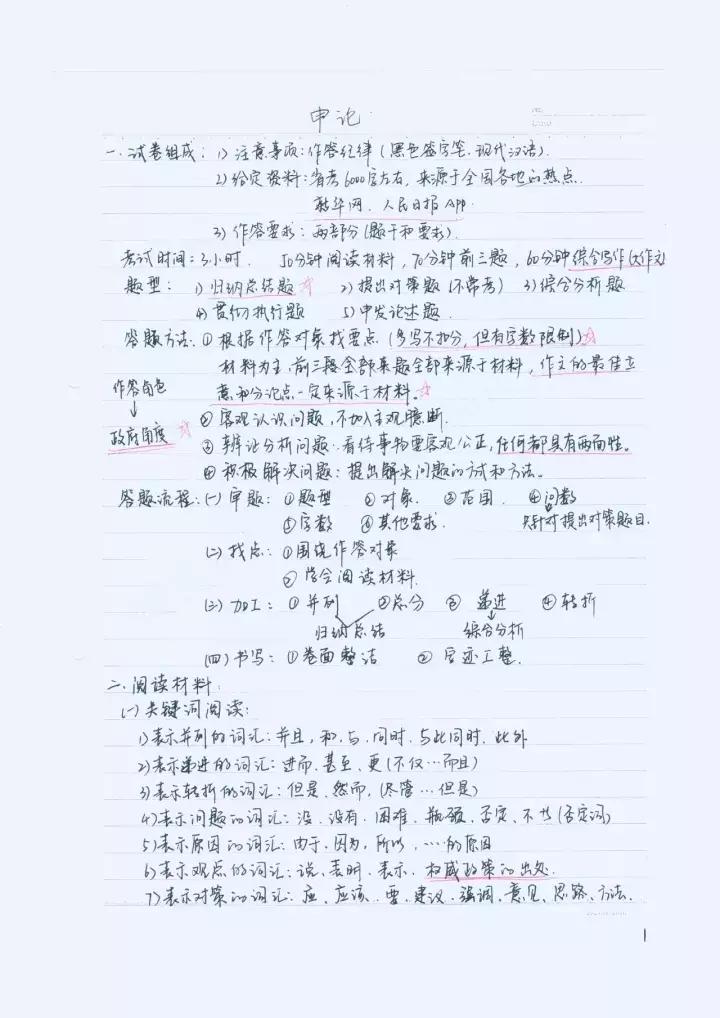 申论
一、试卷组成：1) 注意事项：作答纪律（黑色签字笔、现代汉语）.
2) 给定资料：省考6000字左右，来源于全国各地的热点.
新华网、人民日报App.
3) 作答要求：两部分（题干和要求）.
考试时间：3小时. 50分钟阅读材料，70分钟前三题，60分钟综合写作（大作文）
题型： 1) 归纳总结题☆ 2) 提出对策题（不常考） 3) 综合分析题
4) 贯彻执行题 5) 申发论述题.
答题方法：① 根据作答对象找要点（多写不扣分，但有字数限制）☆
材料为主.前三题全部来题全部来源于材料，作文的最佳立
意和分论点一定来源于材料。☆
作答角色
↓
政府角度☆
② 客观认识问题，不加入主观臆断.
③ 辨证分析问题.看待事物要客观公正，任何都具有两面性。
④ 积极解决问题：提出解决问题的方式和方法。
答题流程：(一) 审题：①题型 ②对象. ③范围. ④问数
⑤字数 ⑥其他要求. 只针对提出对策题目.
(二) 找点：①围绕作答对象
② 学会阅读材料.
(三) 加工：①并列 ②总分 ③递进 ④转折
归纳总结 综合分析
(四) 书写：①卷面整洁 ②字迹工整.
二、阅读材料：
(一) 关键词阅读：
1)表示并列的词汇：并且，和、与、同时、与此同时、此外
2)表示递进的词汇：进而、甚至、更（不仅…而且）
3)表示转折的词汇：但是、然而，（尽管…但是）
4)表示问题的词汇：没、没有、困难、瓶颈、否定、不（否定词）
5)表示原因的词汇：由于、因为，所以、…的原因
6)表示观点的词汇：说、表明、表示、权威政策的出处.
7)表示对策的词汇：应、应该、要、建议、强调、意见、思路、方法.
1